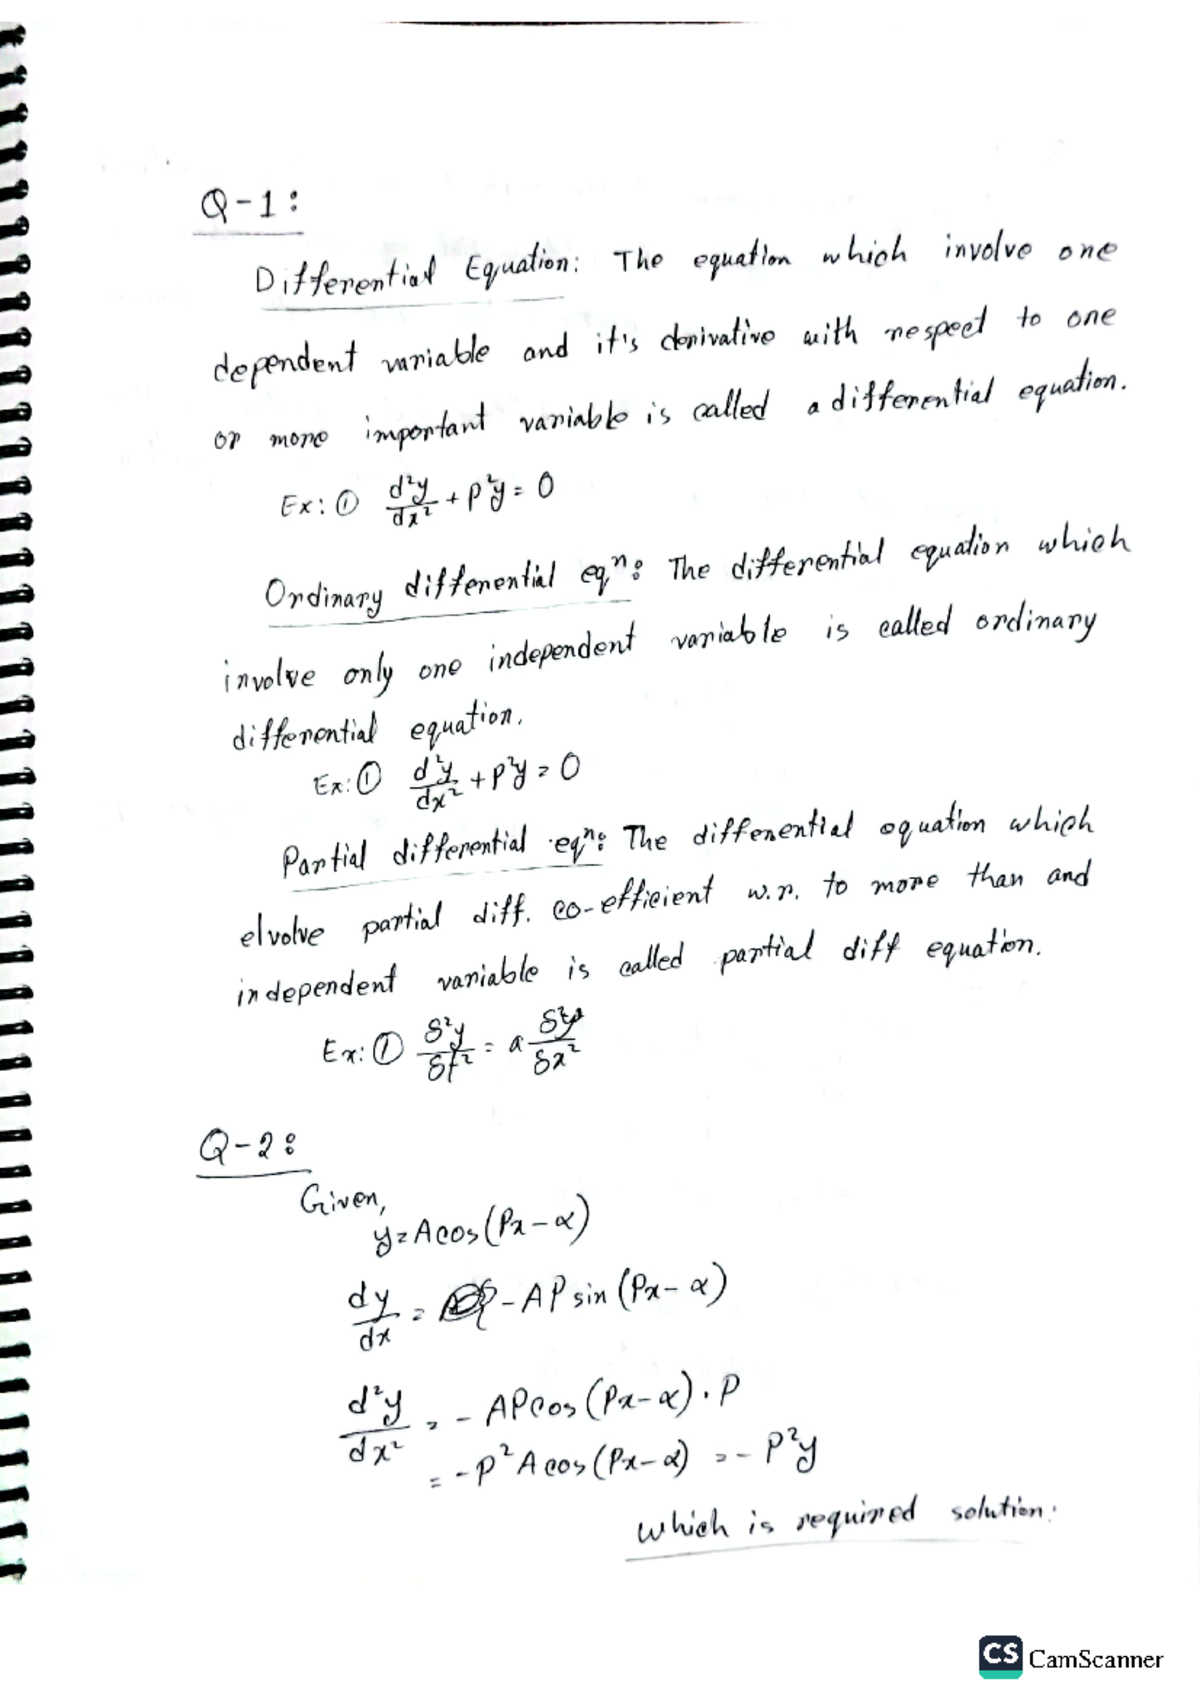 Q-1:
Differential Equation: The equation which involve one
dependent variable and it's derivative with respect to one
or more important variable is called a differential equation.
Ex: ① d²y/dx² + p²y = 0
Ordinary differential eqⁿ: The differential equation which
involve only one independent variable is called ordinary
differential equation.
Ex: ① d²y/dx² + p²y = 0
Partial differential eqⁿ: The differential equation which
elvolve partial diff. co-efficient w.r. to more than and
independent variable is called partial diff equation.
Ex: ① δ²y/δt² = a δ²y/δx²
Q-2:
Given,
y = A cos (Px - α)
dy/dx = - AP sin (Px - α)
d²y/dx² = - AP cos (Px - α) . P
= - P² A cos (Px - α) = - P²y
which is required solution.
CS CamScanner